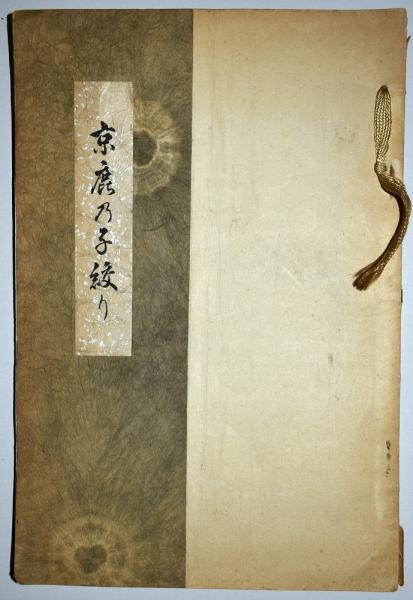 京鹿乃子絞り